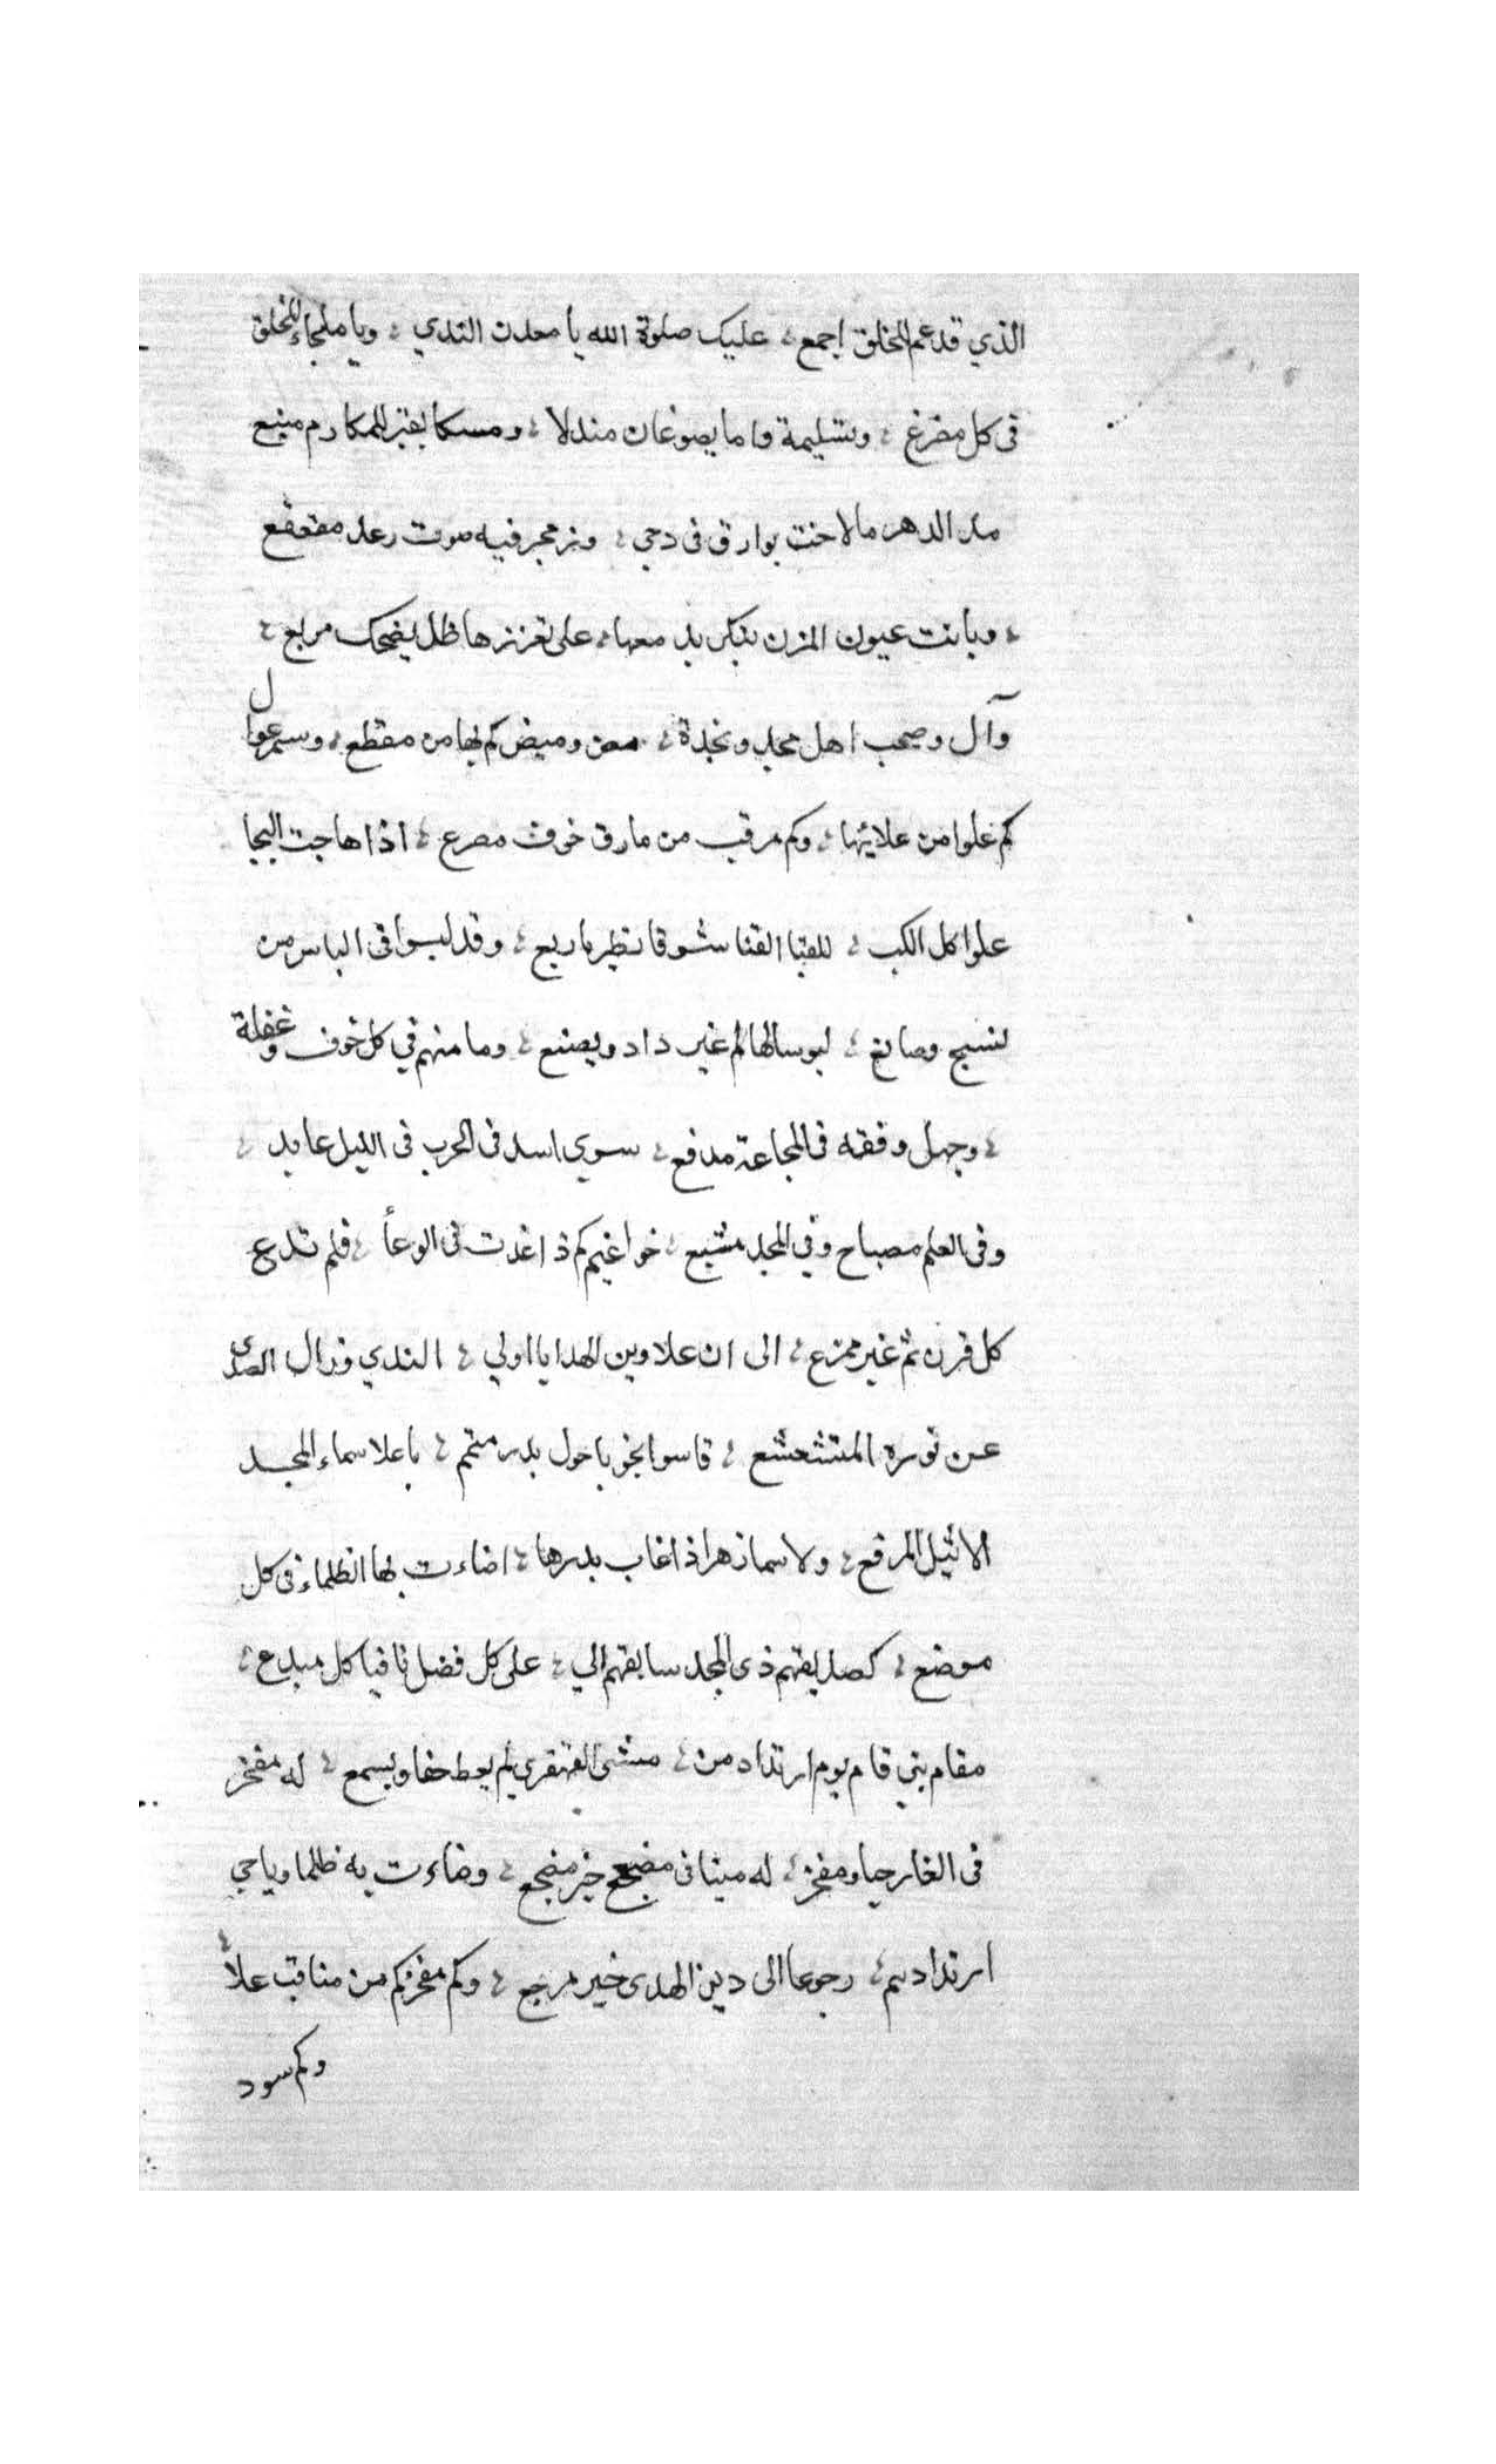 الذي قد عم الخلق اجمع ؛ عليك صلوة الله يا معدن الندي ؛ ويا ملجاء للخلق
في كل مفزع ؛ وتسليمة ما يصوغان مندلا ؛ ومسكا بقبر للمكارم منبع
مدا الدهر ما لاحت بوارق في دجي ؛ وزمجر فيه صوت رعد مقعقع
؛ وباتت عيون المزن تبكي بدمعها ؛ على ظل يضحك مربع ؛
وآل وصحب اهل مجد ونجدة ؛ وميض كم لها من مقطع ؛ وسمر عوال
كم علوا من علائها ؛ وكم مرقب من مارق خوف مصرع ؛ اذا هاجت الهيجا
علوا كل ؛ للقيا القنا شوقا ؛ وقد لبسوا في الباس من
نسيج وصانع ؛ لبوسا لها لم غير داود يصنع ؛ وما منهم في كل خوف وغفلة
؛ وجهل وفقه في المجاعة مدفع ؛ سوي اسد في الحرب في الليل عابد ؛
وفي العلم مصباح وفي المجد مشبع ؛ كم ذا غدت في الوغأ ؛ فلم تدع
كل قرن ثم غير ممزع ؛ الى ان علا دين الهدا يا اولي ؛ الندي وزال الصدى
عن نوره المتشعشع ؛ فاسوا نجوما حول بدر متمم ؛ باعلا سماء المجد
الاثيل المرفع ؛ ولا سما زهر اذا غاب بدرها ؛ اضاءت بها الظلماء في كل
موضع ؛ كصديقهم ذي المجد سابقهم الي ؛ على كل فضل كل مبدع ؛
مقام بني قام يوم ارتداد من ؛ مشى القهقرى لم يعط حقا ويسمع ؛ له مفخر
في الغار حيا ومفخر ؛ له ميتا في مضجع خير مضجع ؛ وضاءت به ظلما
ارتدادهم ؛ رجوعا الى دين الهدى خير مرجع ؛ وكم مفخر كم من مناقب علاً ؛
وكم سود